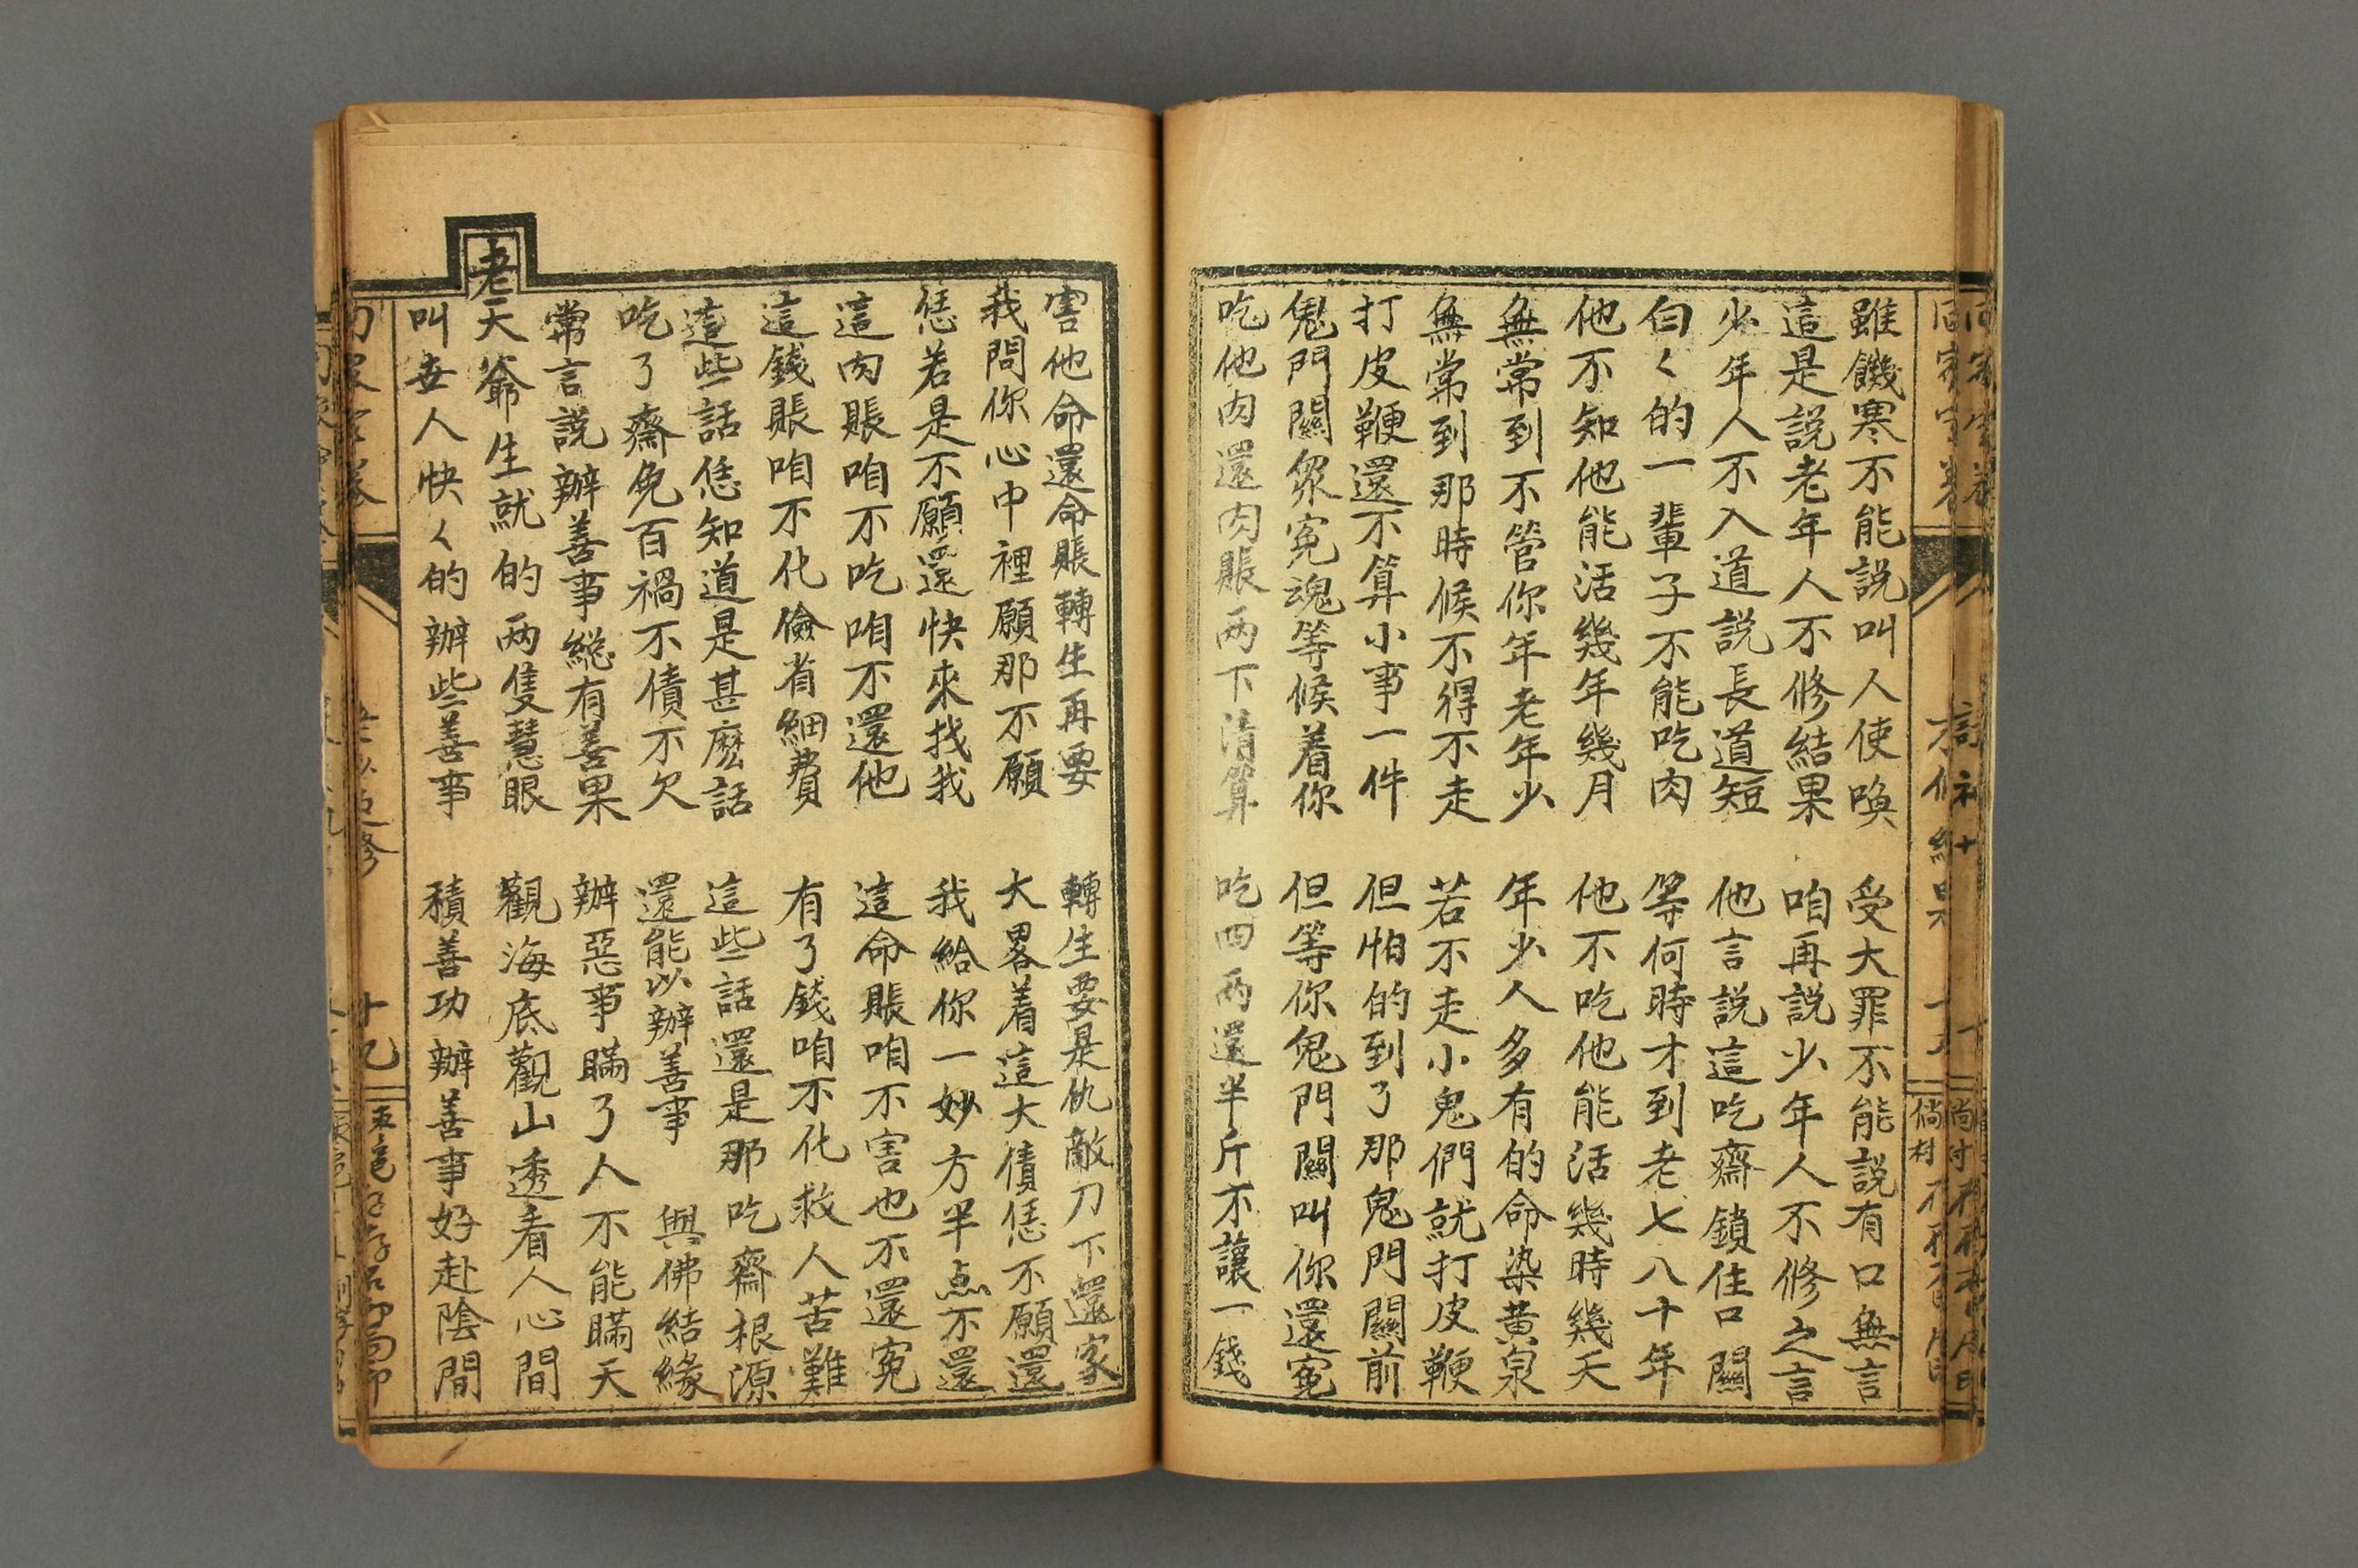 雖饑寒不能説叫人使喚　受大罪不能説有口無言
這是説老年人不修結果　咱再説少年人不修之言
少年人不入道説長道短　他言説這吃齋鎖住口關
白々的一輩子不能吃肉　等何時才到老七八十年
他不知他能活幾年幾月　他不吃他能活幾時幾天
無常到不管你年老年少　年少人多有的命染黄泉
無常到那時候不得不走　若不走小鬼們就打皮鞭
打皮鞭還不算小事一件　但怕的到了那鬼門關前
鬼門關衆寃魂等候着你　但等你鬼門關叫你還寃
吃他肉還肉賬两下清算　吃四两還半斤不讓一錢
害他命還命賬轉生再要　轉生要是仇敵刀下還家
我問你心中裡願那不願　大畧着這大債恁不願還
恁若是不願還快來找我　我給你一妙方半点不還
這肉賬咱不吃咱不還他　這命賬咱不害也不還寃
這錢賬咱不化儉省細費　有了錢咱不化救人苦難
這些話恁知道是甚麽話　這些話還是那吃齋根源
吃了齋免百禍不債不欠　還能以辦善事與佛結緣
常言説辦善事総有善果　辦惡事瞞了人不能瞞天
老天爺生就的两隻慧眼　觀海底觀山透看人心間
叫世人快々的辦些善事　積善功辦善事好赴陰間
十九